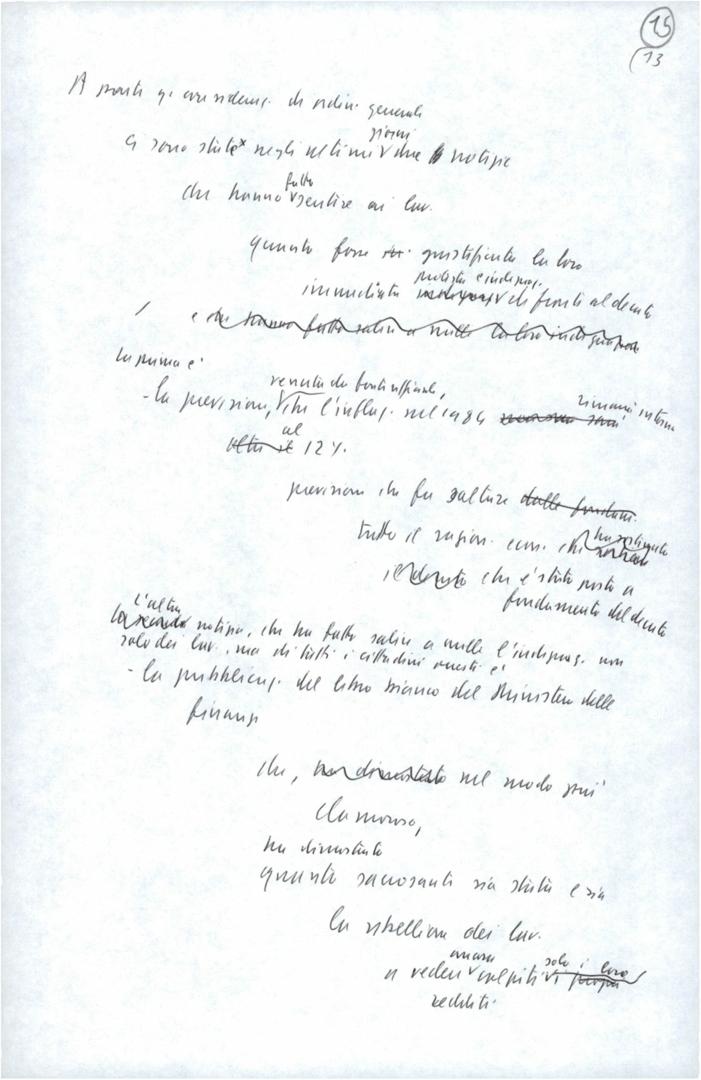 15
13
A fronte di consideraz. di ordine generale
ci sono state negli ultimi giorni due notizie
che hanno fatto sentire ai lav.
quanto fosse giustificata la loro
immediata protesta e indignaz. di fronte al decreto
e che hanno fatto salire a mille la loro indignazione
La prima è
- la previsione, venuta da fonti ufficiali,
che l'inflaz. nel 1984 rimarrà intorno
oltre il al 12%.
previsione che fa saltare dalle fondam.
tutto il ragion. econ. che ha sostenuto
il decreto che è stato posto a
fondamento del decreto
L'altra
la seconda notizia, che ha fatto salire a mille l'indignaz. non
solo dei lav., ma di tutti i cittadini onesti è
- la pubblicaz. del libro bianco del Ministero delle
finanze
che, ha dimostrato nel modo più
clamoroso,
ha dimostrato
quanto sacrosanta sia stata e sia
la ribellione dei lav.
a vedere ancora colpiti solo i loro i propri
redditi